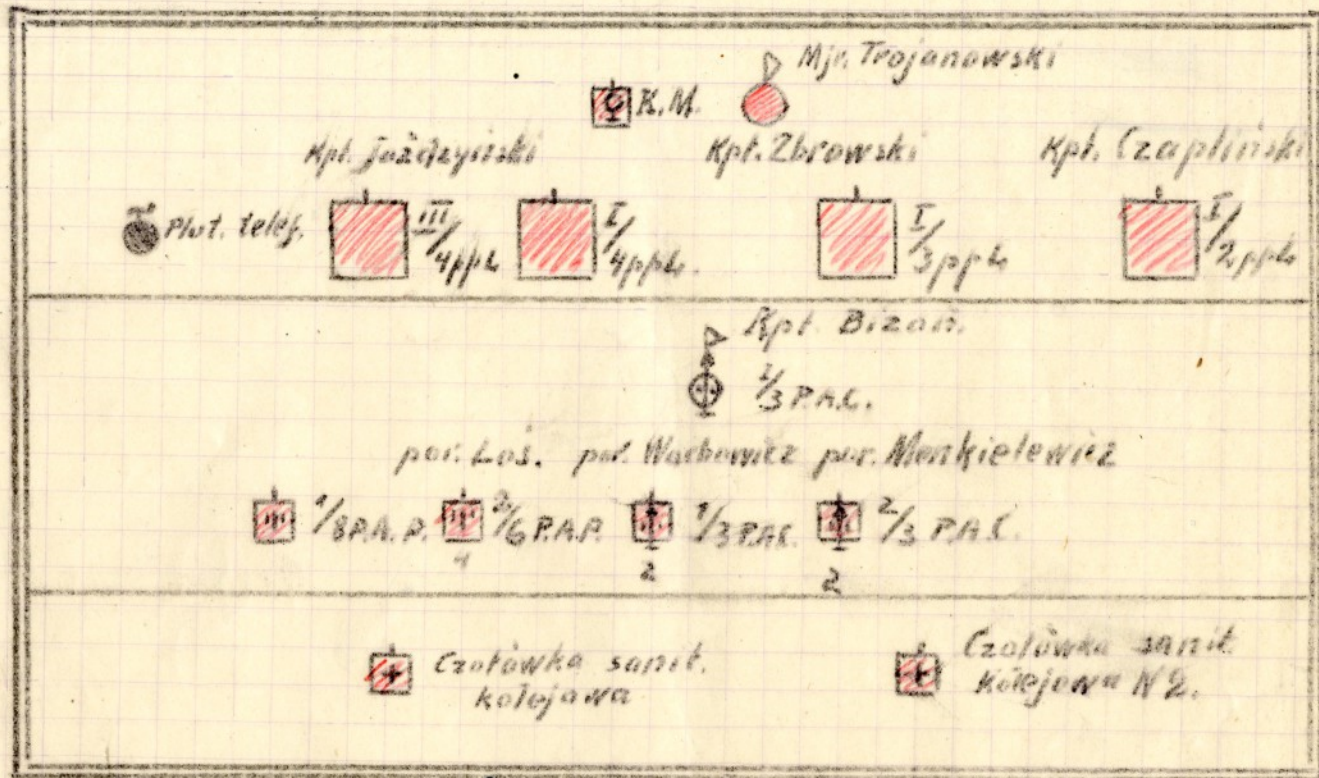 Mjr. Trojanowski
K.M.
Kpt. Jaździyński Kpt. Zbrowski Kpt. Czapliński
Plut. telef. III/4ppL I/4ppL. I/3ppL I/2ppL
Kpt. Bizoń.
I/3 P.A.C.
por. Łoś. por. Wachowicz por. Menkielewicz
1/8 P.A.P. 2/6 P.A.P. 1/3 P.A.C. 2/3 P.A.C.
4 2 2
Czołówka sanit. kolejowa
Czołówka sanit. Kolejowa N2.